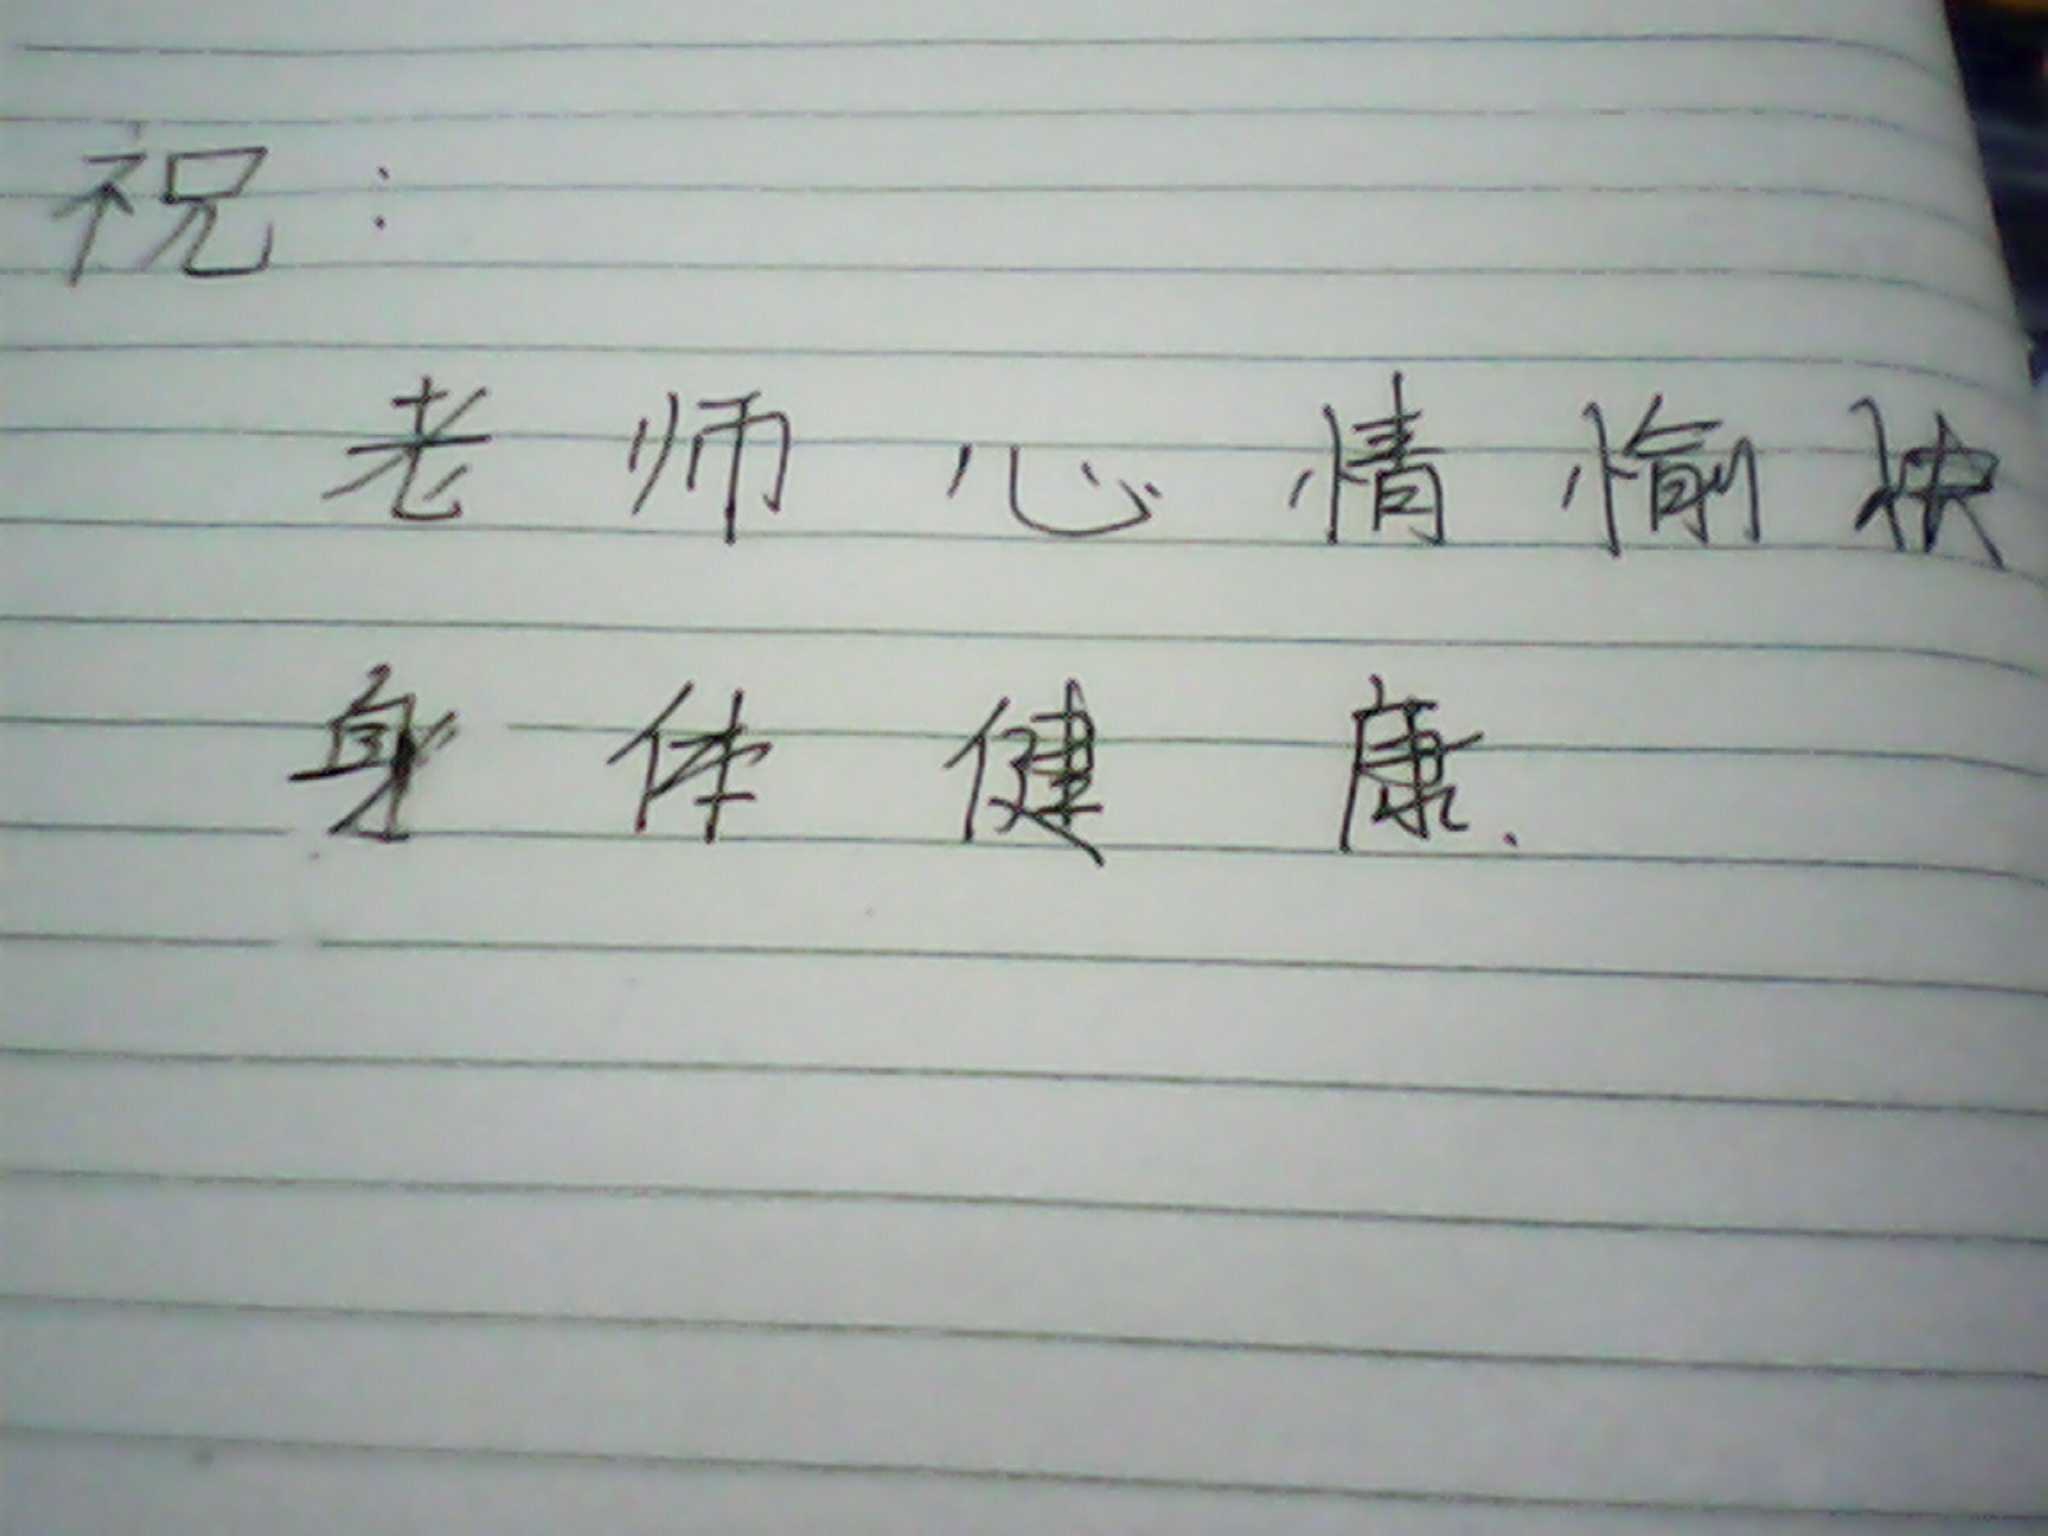 祝：
老师心情愉快
身体健康.